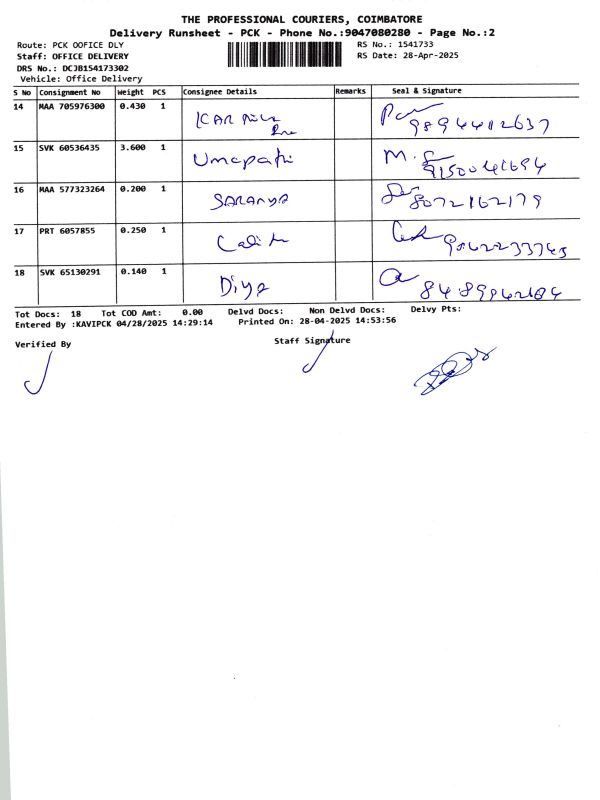 THE PROFESSIONAL COURIERS, COIMBATORE
Delivery Runsheet - PCK - Phone No.:9047080280 - Page No.:2
Route: PCK OOFICE DLY RS No.: 1541733
Staff: OFFICE DELIVERY RS Date: 28-Apr-2025
DRS No.: DCJB154173302
Vehicle: Office Delivery
S No Consignment No Weight PCS Consignee Details Remarks Seal & Signature
14 MAA 705976300 0.430 1
15 SVK 60536435 3.600 1 Umapathi
16 MAA 577323264 0.200 1 SARANYA 8072162179
17 PRT 6057855 0.250 1
18 SVK 65130291 0.140 1 Diya
Tot Docs: 18 Tot COD Amt: 0.00 Delvd Docs: Non Delvd Docs: Delvy Pts:
Entered By :KAVIPCK 04/28/2025 14:29:14 Printed On: 28-04-2025 14:53:56
Verified By Staff Signature